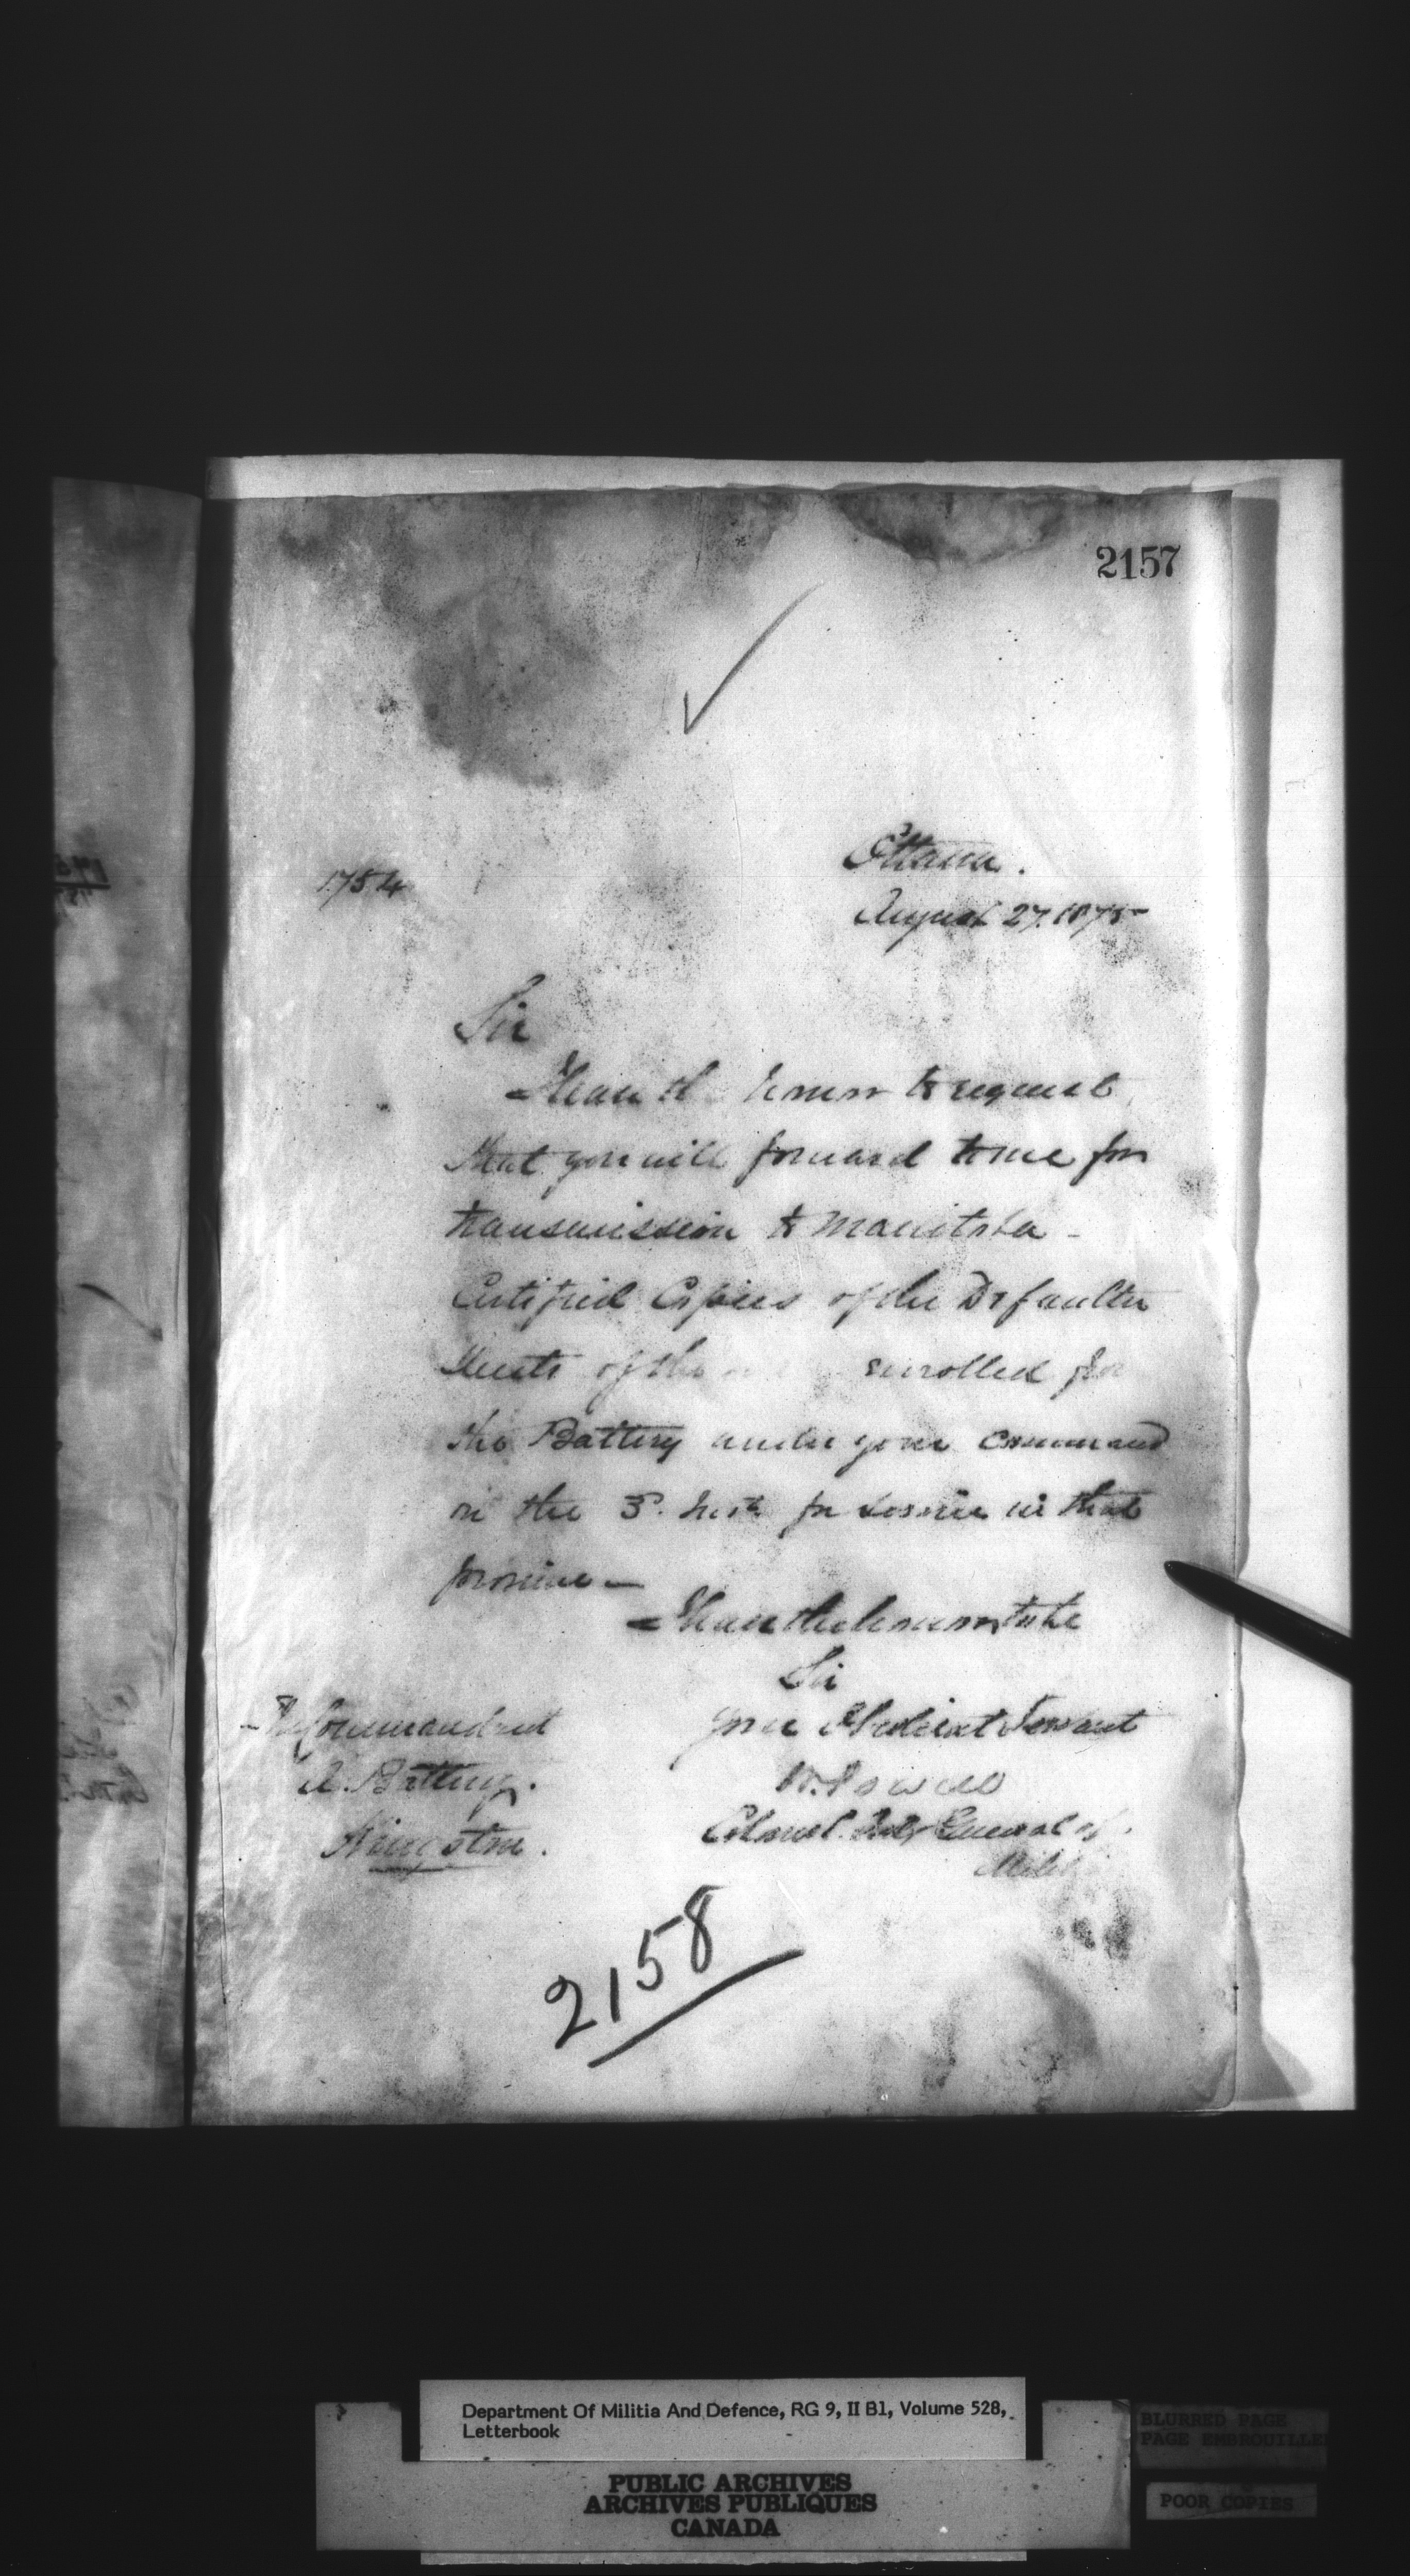 2157
1754
Ottawa.
August 27. 1875
Sir
I have th honor to request
that you will forward to me for
transmission to Manitoba -
Certified Copies of the Defaulter
Sheets of the enrolled for
the Battery under your command
on the 3. Inst. for service in that
province -
I have the honor to be
Sir
your Obedient Servant
W. Powell
Colonel. General of
Milit
The Commandant
A. Battery.
Kingston.
2158
Department Of Militia And Defence, RG 9, II B1, Volume 528,
Letterbook
BLURRED PAGE
PAGE EMBROUILLE
PUBLIC ARCHIVES
ARCHIVES PUBLIQUES
CANADA
POOR COPIES